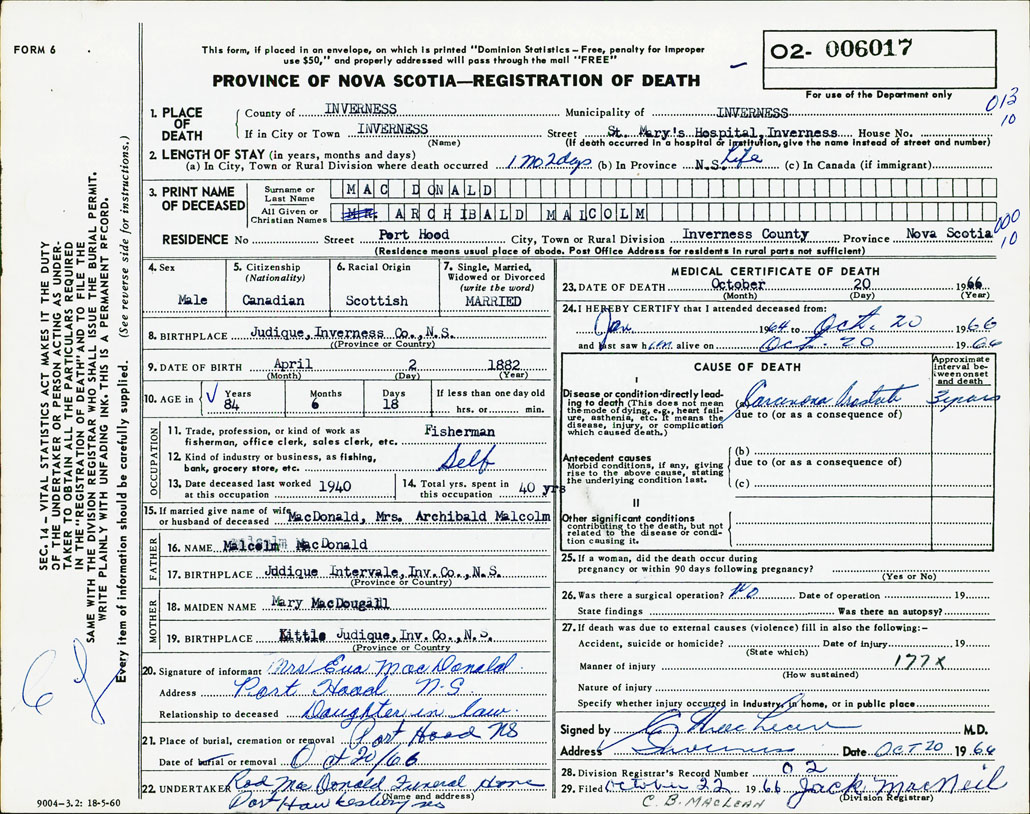 FORM 6
This form, if placed in an envelope, on which is printed "Dominion Statistics – Free, penalty for improper
use $50," and properly addressed will pass through the mail "FREE"
PROVINCE OF NOVA SCOTIA—REGISTRATION OF DEATH
02- 006017
For use of the Department only
013
10
1. PLACE OF DEATH
County of INVERNESS Municipality of INVERNESS
If in City or Town INVERNESS Street St. Mary's Hospital, Inverness House No.
(Name) (If death occurred in a hospital or institution, give the name instead of street and number)
2. LENGTH OF STAY (in years, months and days)
(a) In City, Town or Rural Division where death occurred 1 mo 2 dys (b) In Province N.S. Life (c) In Canada (if immigrant)
3. PRINT NAME OF DECEASED
Surname or Last Name MAC DONALD
All Given or Christian Names MR. ARCHIBALD MALCOLM
000
10
RESIDENCE No Street Port Hood City, Town or Rural Division Inverness County Province Nova Scotia
(Residence means usual place of abode. Post Office Address for residents in rural parts not sufficient)
SEC. 14 – VITAL STATISTICS ACT MAKES IT THE DUTY
OF THE UNDERTAKER OR PERSON ACTING AS UNDER-
TAKER TO OBTAIN ALL THE PARTICULARS REQUIRED
IN THE "REGISTRATION OF DEATH" AND TO FILE THE
SAME WITH THE DIVISION REGISTRAR WHO SHALL ISSUE THE BURIAL PERMIT.
WRITE PLAINLY WITH UNFADING INK. THIS IS A PERMANENT RECORD.
Every item of information should be carefully supplied. (See reverse side for instructions.)
4. Sex Male
5. Citizenship (Nationality) Canadian
6. Racial Origin Scottish
7. Single, Married, Widowed or Divorced (write the word) MARRIED
8. BIRTHPLACE Judique, Inverness Co., N.S.
(Province or Country)
9. DATE OF BIRTH April 2 1882
(Month) (Day) (Year)
10. AGE in Years 84 Months 6 Days 18 If less than one day old hrs. or min.
OCCUPATION
11. Trade, profession, or kind of work as fisherman, office clerk, sales clerk, etc. Fisherman
12. Kind of industry or business, as fishing, bank, grocery store, etc. Self
13. Date deceased last worked at this occupation 1940
14. Total yrs. spent in this occupation 40 yrs
15. If married give name of wife or husband of deceased MacDonald, Mrs. Archibald Malcolm
FATHER
16. NAME Malcolm MacDonald
17. BIRTHPLACE Judique Intervale, Inv. Co., N.S.
(Province or Country)
MOTHER
18. MAIDEN NAME Mary MacDougall
19. BIRTHPLACE Little Judique, Inv. Co., N.S.
(Province or Country)
20. Signature of informant Mrs Eva MacDonald
Address Port Hood N-S
Relationship to deceased Daughter in law
21. Place of burial, cremation or removal Port Hood NS
Date of burial or removal Oct 20/66
22. UNDERTAKER Rod MacDonald Funeral Home
(Name and address)
Port Hawkesbury NS
9004-3.2: 18-5-60
MEDICAL CERTIFICATE OF DEATH
23. DATE OF DEATH October 20 1966
(Month) (Day) (Year)
24. I HEREBY CERTIFY that I attended deceased from:
Jan 1964 to Oct. 20 1966
and last saw him alive on Oct. 20 1966
CAUSE OF DEATH
Approximate interval between onset and death
I
Disease or condition directly leading to death (This does not mean the mode of dying, e.g., heart failure, asthenia, etc. It means the disease, injury, or complication which caused death.)
(a) Carcinoma Prostate 3 years
due to (or as a consequence of)
Antecedent causes
Morbid conditions, if any, giving rise to the above cause, stating the underlying condition last.
(b)
due to (or as a consequence of)
(c)
II
Other significant conditions contributing to the death, but not related to the disease or condition causing it.
25. If a woman, did the death occur during pregnancy or within 90 days following pregnancy?
(Yes or No)
26. Was there a surgical operation? No Date of operation 19
State findings Was there an autopsy?
27. If death was due to external causes (violence) fill in also the following:–
Accident, suicide or homicide? Date of injury 19
(State which)
Manner of injury 177X
(How sustained)
Nature of injury
Specify whether injury occurred in Industry, in home, or in public place
Signed by M.D.
Address Inverness Date OCT 20 1966
28. Division Registrar's Record Number 02
29. Filed October 22 1966 Jack MacNeil
(Division Registrar)
C. B. MACLEAN